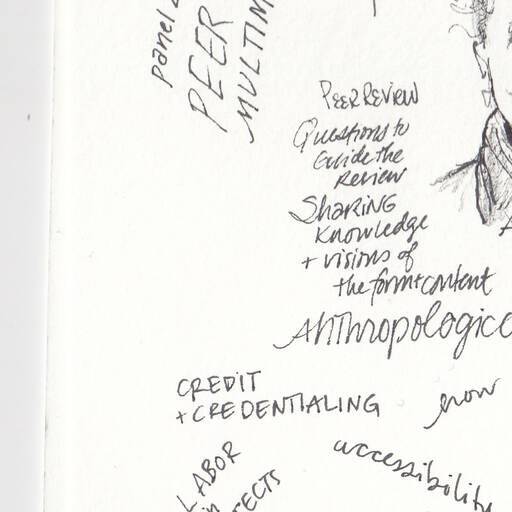 panel
PEER
MULTIM
PEER REVIEW
Questions to
Guide the
Review
SHARING
Knowledge
+ visions of
the form + content
Anthropologica
CREDIT
+ CREDENTIALING
accessibility
LABOR
in